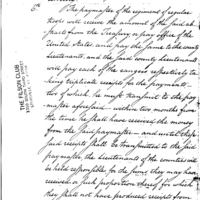 6th The paymaster of the regiment of regular
troops will receive the amount of the said ab-
stracts from the Treasury or pay office of the
United States, and pay the same to the county
Lieutenants, and the said county Lieutenants
will pay each of the rangers respectively ta-
king duplicate receipts for the payments—
two of which he must transmit to the pay-
master aforesaid within two months from
the time he shall have received the money
from the said paymaster— and until such
said receipts shall be transmitted to the said
paymaster, the Lieutenants of the counties will
be held responsible for the sums they may have
received, or such proportion thereof for which
they shall not have produced receipts from
THE FILSON CLUB